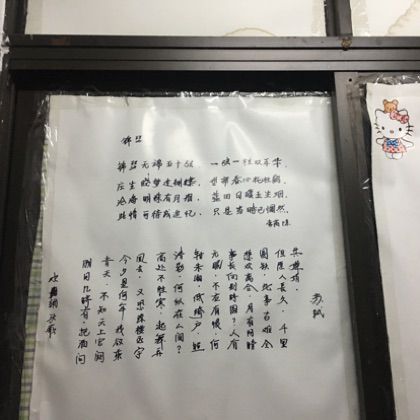 锦瑟
锦瑟无端五十弦， 一弦一柱思华年
庄生晓梦迷蝴蝶， 望帝春心托杜鹃
沧海明珠有月泪， 蓝田日暖玉生烟
此情可待成追忆， 只是当时已惘然
李商隐
水调歌头
明月几时有把酒问
青天，不知天上宫阙
今夕是何年我欲乘
风去，又恐琼楼玉宇
高处不胜寒，起舞弄
清影，何似在人间？
转朱阁，低绮户，照
无眠，不应有恨，何
事长向别时圆？人有
悲欢离合，月有阴晴
圆缺，此事古难全
但愿人长久，千里
共婵娟。
苏轼